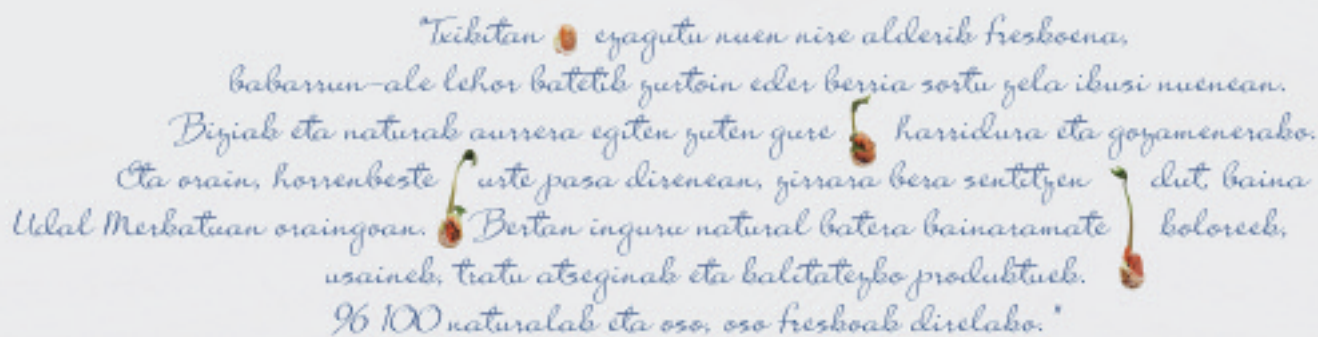 "Txikitan ezagutu nuen nire alderik freskoena,
babarrun-ale lehor batetik zurtoin eder berria sortu zela ikusi nuenean.
Biziak eta naturak aurrera egiten zuten gure harridura eta gozamenerako.
Eta orain, horrenbeste urte pasa direnean, zirrara bera sentitzen dut, baina
Udal Merkatuan oraingoan. Bertan inguru natural batera bainaramate koloreek,
usainek, tratu atseginak eta kalitatezko produktuek.
% 100 naturalak eta oso, oso freskoak direlako."